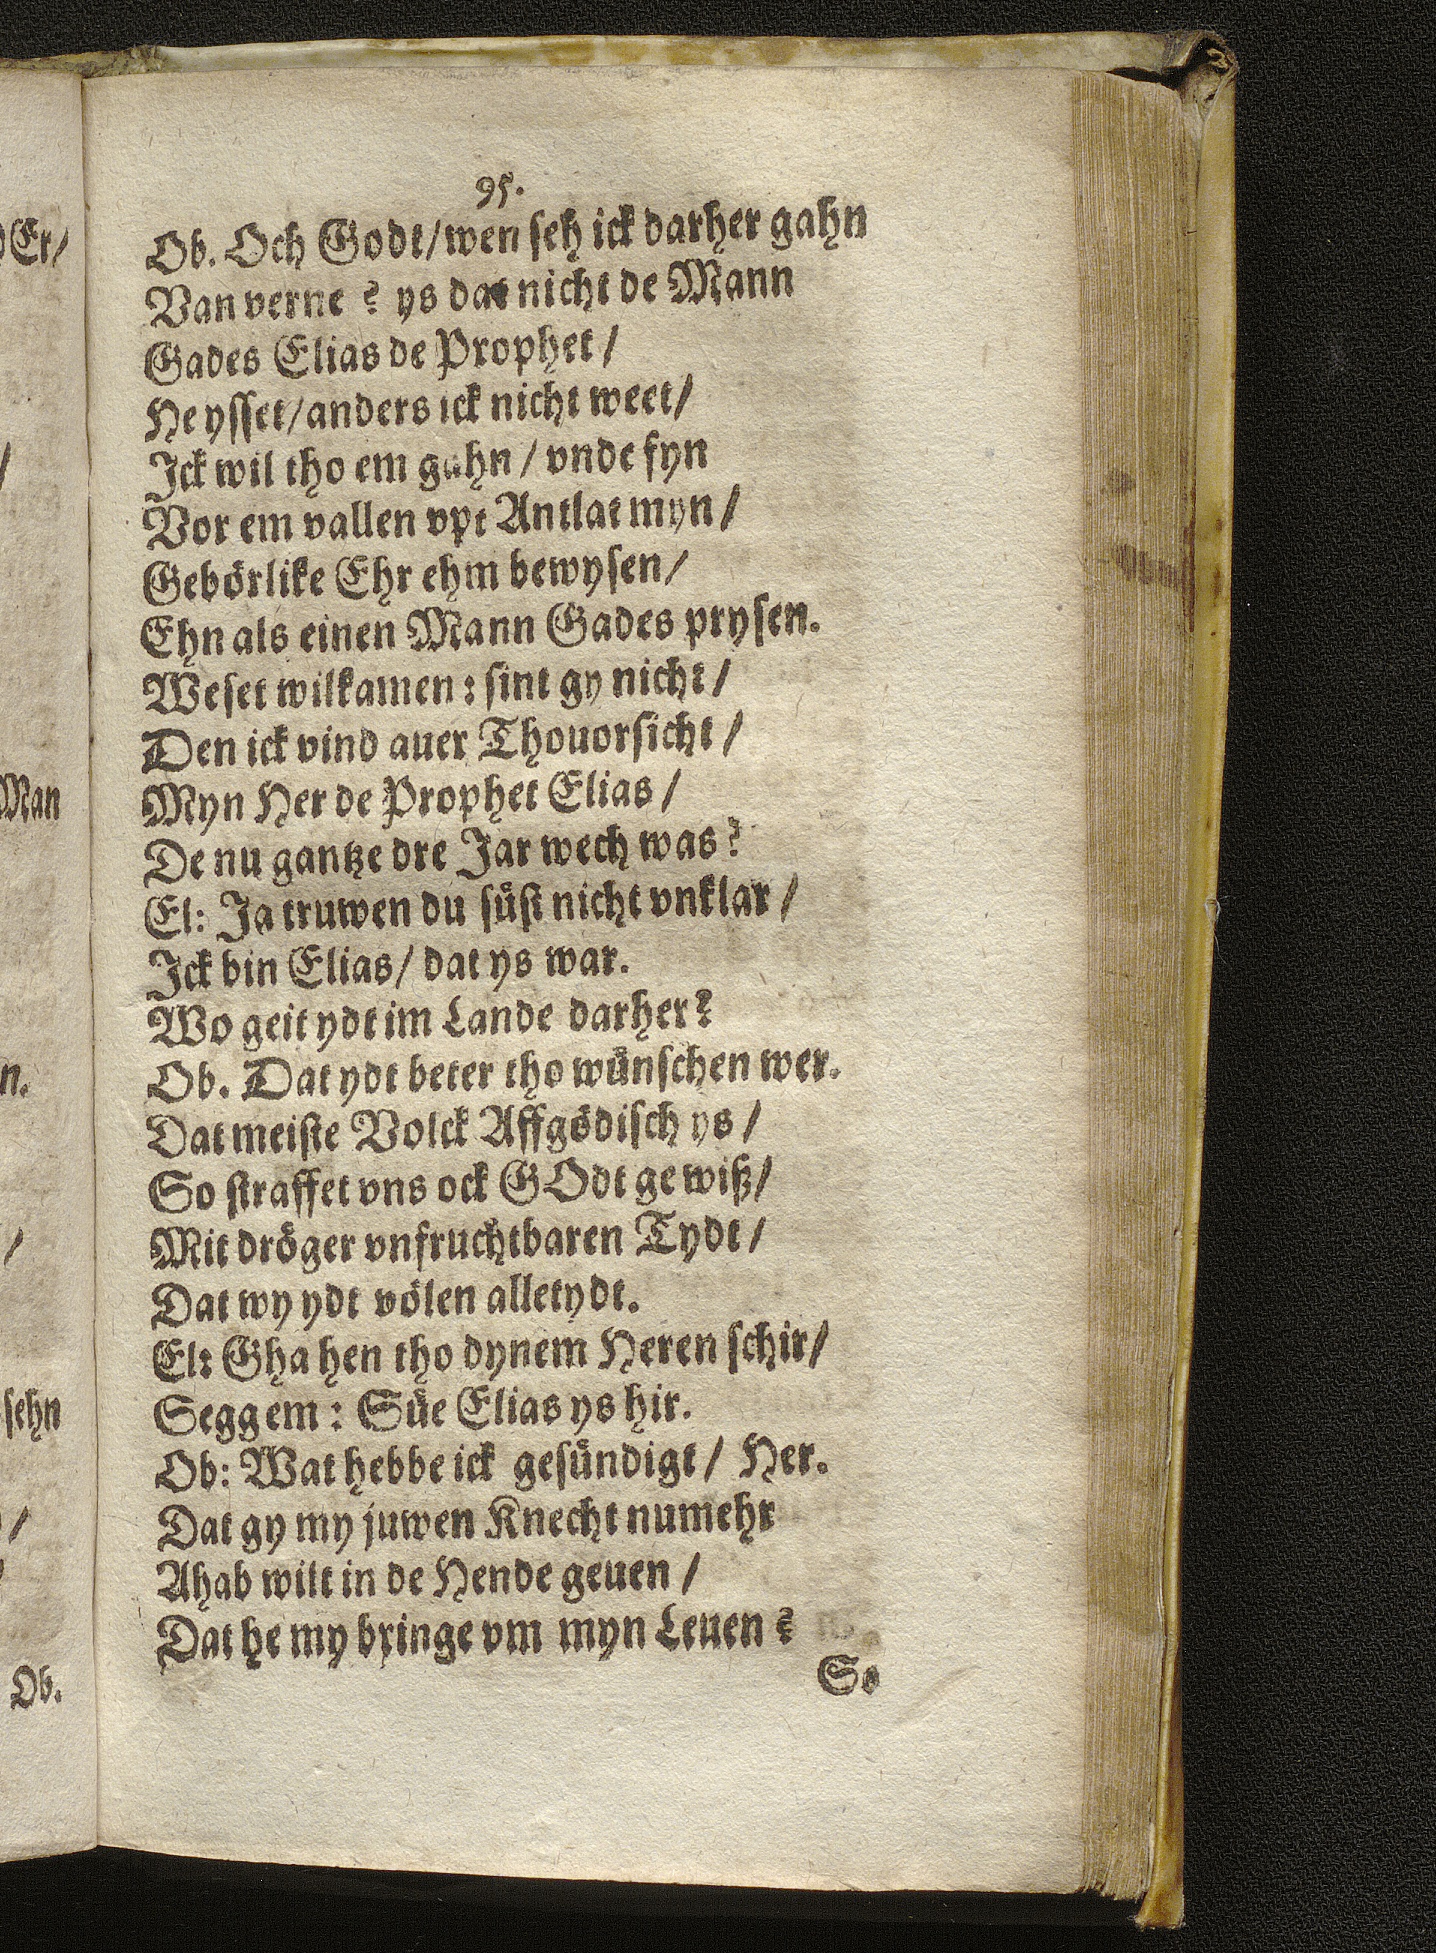 95.
Ob. Och Godt/wen seh ick darher gahn
Van verne? ys dat nicht de Mann
Gades Elias de Prophet/
He ysset/anders ick nicht weet/
Ick wil tho em gahn/vnde fyn
Vor em vallen vpt Antlat myn/
Gebörlike Ehr ehm bewysen/
Ehn als einen Mann Gades prysen.
Weset wilkamen: sint gy nicht/
Den ick vind auer Thouorsicht/
Myn Her de Prophet Elias/
De nu gantze dre Jar wech was?
El: Ja truwen du süst nicht vnklar/
Ick bin Elias/dat ys war.
Wo geit ydt im Lande darher?
Ob. Dat ydt beter tho wünschen wer.
Dat meiste Volck Affgödisch ys/
So straffet vns ock GOdt gewiß/
Mit dröger vnfruchtbaren Tydt/
Dat wy ydt völen alletydt.
El: Gha hen tho dynem Heren schir/
Segg em: Süe Elias ys hir.
Ob: Wat hebbe ick gesündigt/ Her.
Dat gy my juwen Knecht numehr
Ahab wilt in de Hende geuen/
Dat he my bringe vm myn Leuen?
So
Er/
Man
n.
sehn
Ob.